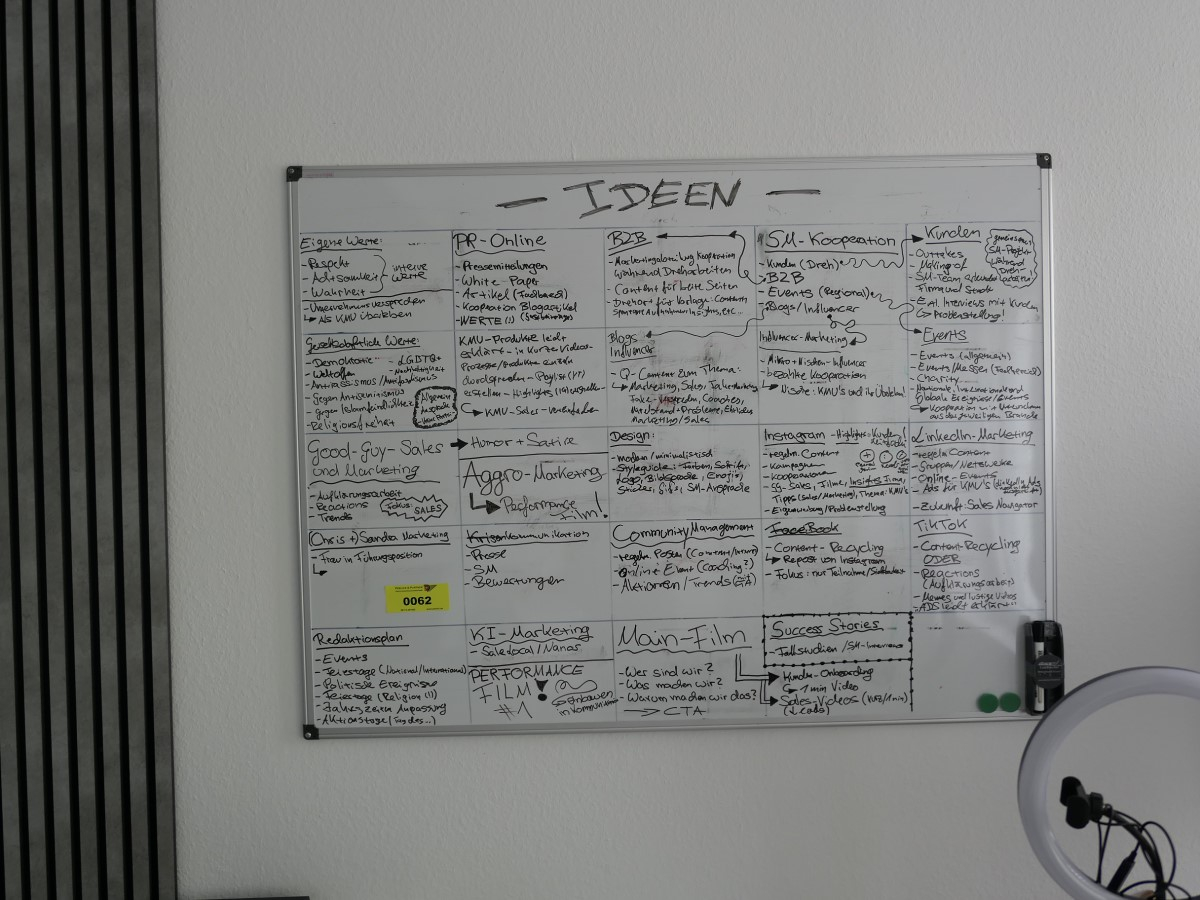 — IDEEN —
Eigene Werte:
- Respekt
- Achtsamkeit
- Wahrheit
interne
Werte
- Unternehmensversprechen
↳ Als KMU überleben
PR-Online
- Pressemitteilungen
- White-Paper
- Artikel (Fachbasiert)
- Kooperation Blogartikel
- WERTE (!)
B2B
- Marketingabteilung Kooperation
während Dreharbeiten
- Content für beide Seiten
- Drehort für Vorlage: Content,
spontane Aufnahmen, Insights, etc...
SM-Kooperation
- Kunden (Dreh)
- B2B
- Events (Regional)
- Blogs/Influencer
Kunden
- Outtakes
- Making of
- SM-Team
Firma und Stadt
- Evtl. Interviews mit Kunden
↳ Problemstellung!
gemeinsames
SM-Projekt
während
Dreh-
arbeiten!
Gesellschaftliche Werte:
- Demokratie
- Weltoffen
- LGBTQ+
- Nachhaltigkeit
- Antirassismus/Antifaschismus
- gegen Antisemitismus
- gegen Islamfeindlichkeit
- Religionsfreiheit
Allgemein
Ansprache
KMU-Produkte leicht
erklärt - in Kurze Videos
Prozesse/Produkte einzeln
durchsprechen - Playlist (YT)
erstellen - Highlights (IG) erstellen
↳ KMU-Sales-Vertriebler
Blogs
Influencer
- Q-Content zum Thema:
↳ Marketing, Sales, Fake-Marketing
Fake-Versprechen, Coaches,
Mittelstand-Probleme, Ehrliches
Marketing/Sales
Influencer-Marketing
- Mikro+Nischen-Influencer
- bezahlte Kooperation
↳ Nische: KMU's und ihr Überleben!
Events
- Events (allgemein)
- Events/Messen (Fachbereich)
- Charity
- Nationale, internationale und
Globale Ereignisse/Events
↳ Kooperation mit Unternehmen
aus der jeweiligen Branche
Good-Guy-Sales
und Marketing
- Aufklärungsarbeit
- Reactions
- Trends
Fokus:
SALES
→ Humor + Satire
Aggro-Marketing
↳ Performance
Film!
Design:
- modern/minimalistisch
- Styleguide: Farben, Schrift,
Logo, Bildsprache, Emojis,
Sticker, Gifs, SM-Ansprache
Instagram - Highlights: Kunden
- regelm. Content
- Kampagnen
- Kooperationen
- Sales, Filme, Insights Firma,
Tipps (Sales/Marketing), Thema: KMU's
- Eigenwerbung/Problemstellung
LinkedIn-Marketing
- regelm. Content
- Gruppen/Netzwerke
- Online-Events
- Ads für KMU's
- Zukunft: Sales Navigator
(Chris +) Sandra Marketing
- Frau in Führungsposition
↳
0062
Krisenkommunikation
- Presse
- SM
- Bewertungen
Community Management
- regelm. Posten (Content/Intern)
- Online Event (Coaching?)
- Aktionen/Trends
FaceBook
- Content-Recycling
↳ Repost von Instagram
- Fokus: nur Teilnahme/Sichtbarkeit
TikTok
- Content-Recycling
ODER
- Reactions
(Aufklärungsarbeit)
- Memes und lustige Videos
- "ADS leicht erklärt"
Redaktionsplan
- Events
- Feiertage (National/International)
- Politische Ereignisse
- Feiertage (Religion (!))
- Jahreszeiten Anpassung
- Aktionstage (Tag des...)
KI-Marketing
- Saleslocal/Nanos
PERFORMANCE
FILM!
#1
Einbauen
in Kommunikation
Main-Film
- Wer sind wir?
- Was machen wir?
- Warum machen wir das?
→ CTA
Success Stories
- Fallstudien/SM-Interviews
Kunden-Onboarding
↳ 1 min Video
Sales-Videos
(Leads)